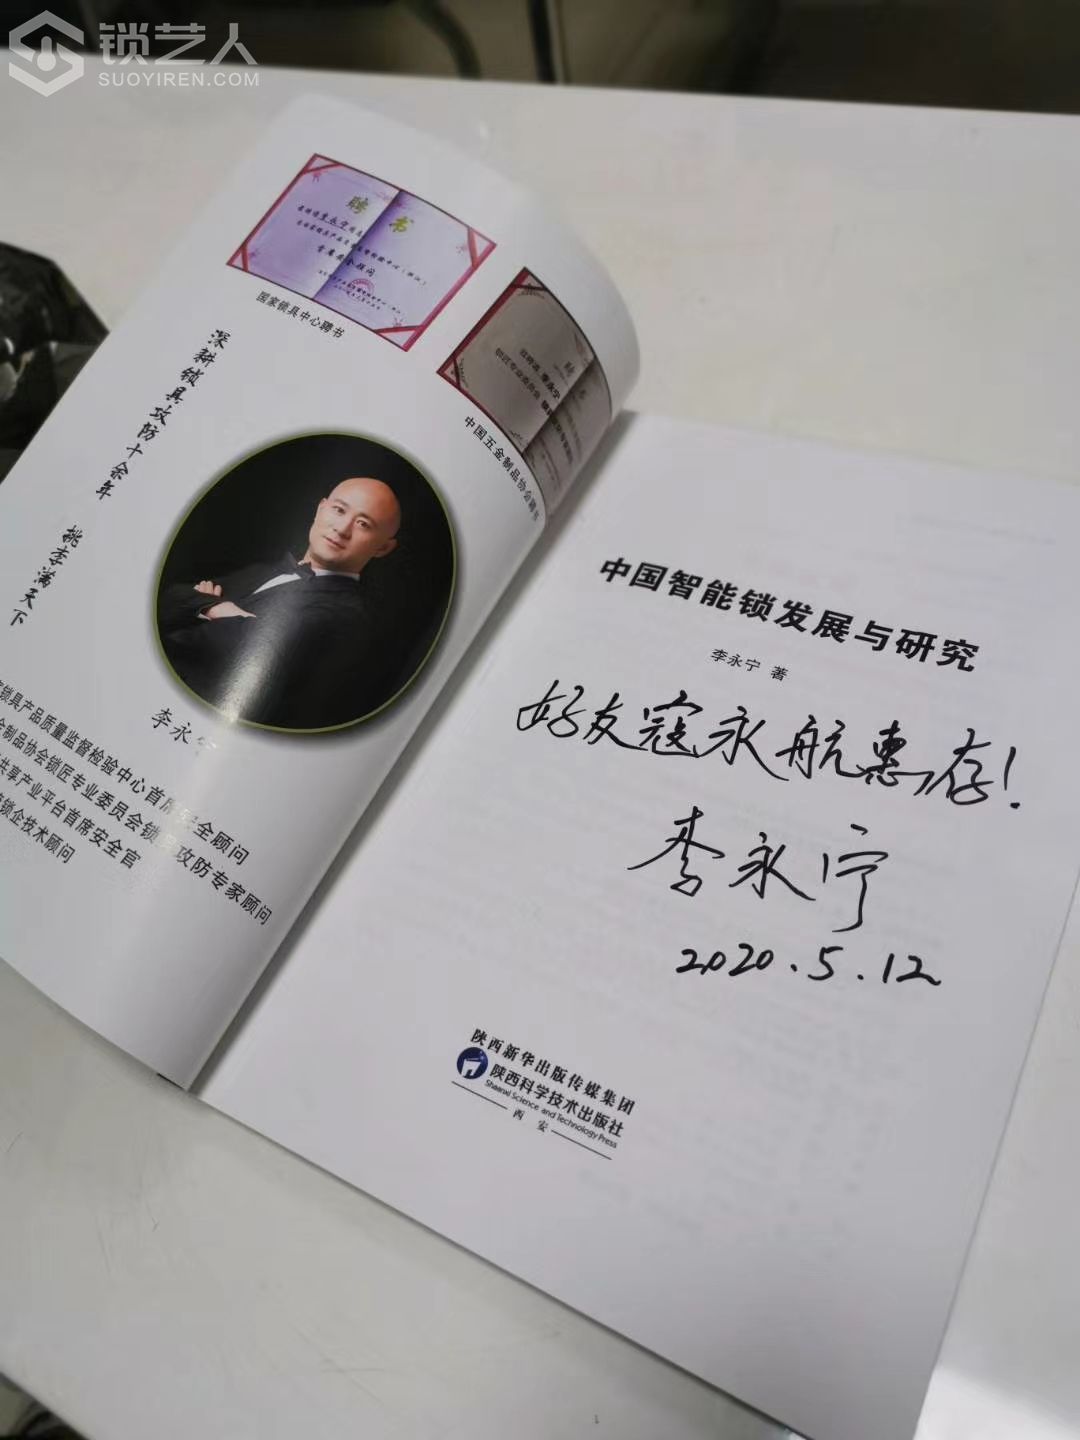 锁艺人
SUOYIREN.COM
聘书
首席安全顾问
国家锁具中心聘书
聘
李永宁
中国五金制品协会聘书
深耕锁具攻防十余年 桃李满天下
李永宁
锁具产品质量监督检验中心首席安全顾问
金制品协会锁匠专业委员会锁具攻防专家顾问
共享产业平台首席安全官
锁企技术顾问
中国智能锁发展与研究
李永宁 著
好友寇永航惠存!
李永宁
2020.5.12
陕西新华出版传媒集团
陕西科学技术出版社
Shaanxi Science and Technology Press
西安